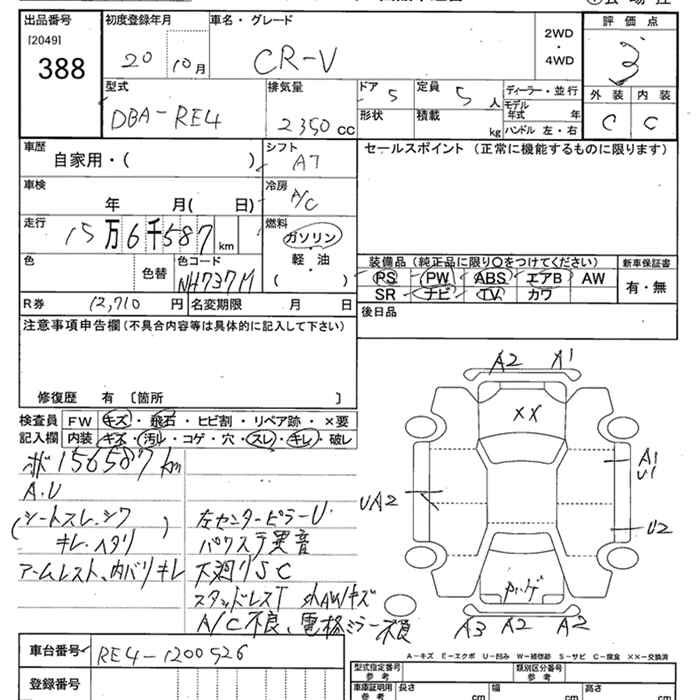 出品番号 初度登録年月 車名・グレード 評価点
[2049]
388 20 10月 CR-V 2WD・4WD 3
型式 排気量 ドア 5 定員 5人 ディーラー・並行 外装 内装
DBA-RE4 2350cc 形状 積載 kg モデル年式 年 C C
ハンドル 左・右
車歴 シフト セールスポイント (正常に機能するものに限ります)
自家用・( ) AT
車検 冷房
年 月( 日) A/C
走行 燃料
15万6千587km ガソリン
色 色替 色コード 軽・油
NH737M ( )
装備品 (純正品に限り○をつけてください) 新車保証書
PS PW ABS エアB AW 有・無
SR ナビ TV カワ
R券 12,710円 名変期限 月 日 後日品
注意事項申告欄 (不具合内容等は具体的に記入して下さい)
修復歴 有 [箇所 ]
検査員 FW キズ・飛石・ヒビ割・リペア跡・×要
記入欄 内装 キズ・汚レ・コゲ・穴・スレ・キレ・破レ
156587km
A.U
(シートスレ、シワ 左センターピラーU
キレ・ヘタリ) バックステ異音
アームレスト、内バリキレ 下廻りSC
スタッドレスT 外AWキズ
A/C不良、電格ミラー不良
A2 X1
XX
A1
U1
UA2
U2
A3 A2 A2
車台番号 RE4-1200526
登録番号
A-キズ E-エクボ U-凹み W-補修跡 S-サビ C-腐食 ××-交換済
型式指定番号 参考 類別区分番号 参考
車庫証明用 参考 長さ cm 幅 cm 高さ cm